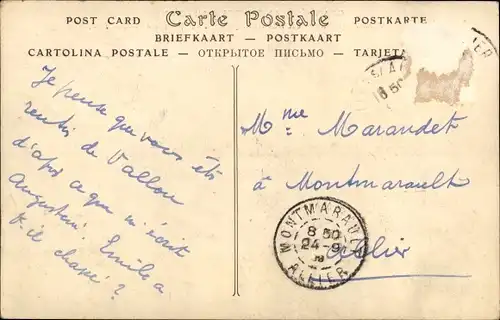 POST CARD Carte Postale POSTKARTE
BRIEFKAART — POSTKAART
CARTOLINA POSTALE — ОТКРЫТОЕ ПИСЬМО — TARJETA
Je pense que vous êtes
rentrés de Vallon
d'après ce que m'écrit
Augustin. Emile a
t-il chassé ?
Mme Marandet
à Montmarault
Allier
MONTMARAULT
8 50
24-9
ALLIER